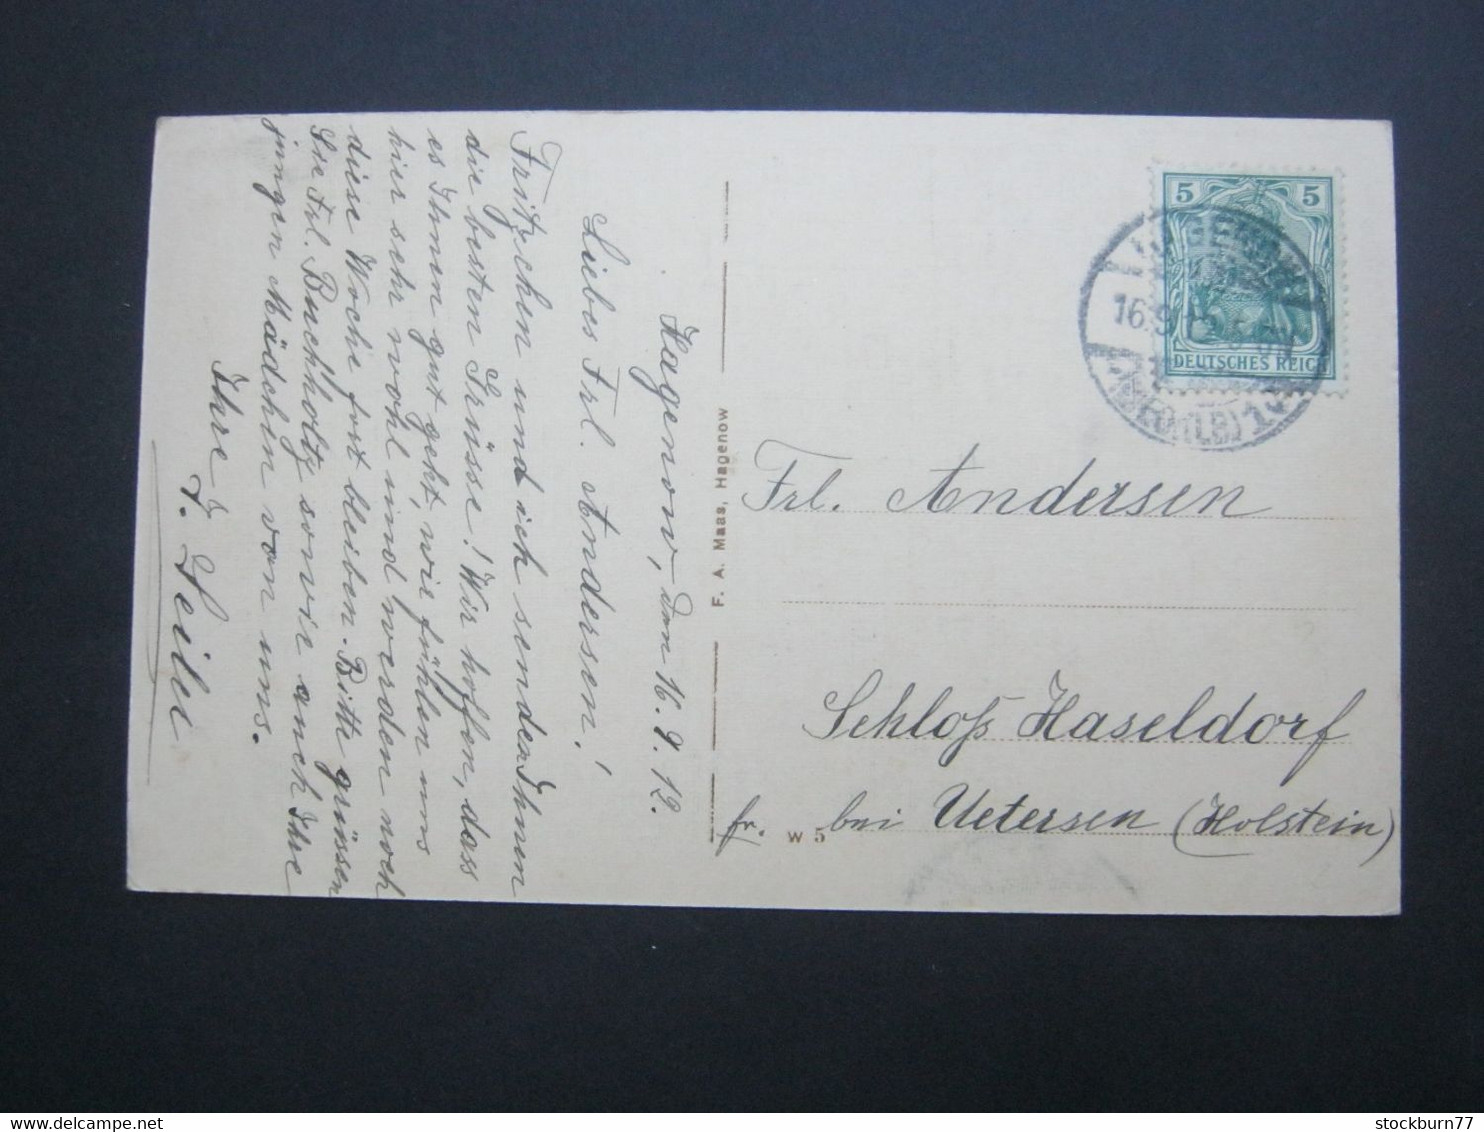 Hagenow, den 16.9.12.
Liebes Frl. Andersen!
Fritzchen und ich senden Ihnen
die besten Grüsse! Wir hoffen, dass
es Ihnen gut geht, wir fühlen uns
hier sehr wohl und werden noch
diese Woche fort bleiben. Bitte grüssen
Sie Frl. Buchholtz sowie auch Ihre
jungen Mädchen von uns.
Ihre
F. A. Maas, Hagenow
5 5
DEUTSCHES REICH
HAGENOW
(MECKLB)
Frl. Andersen
Schloß Haseldorf
fr. bei Uetersen (Holstein)
W 5
stockburn77
delcampe.net